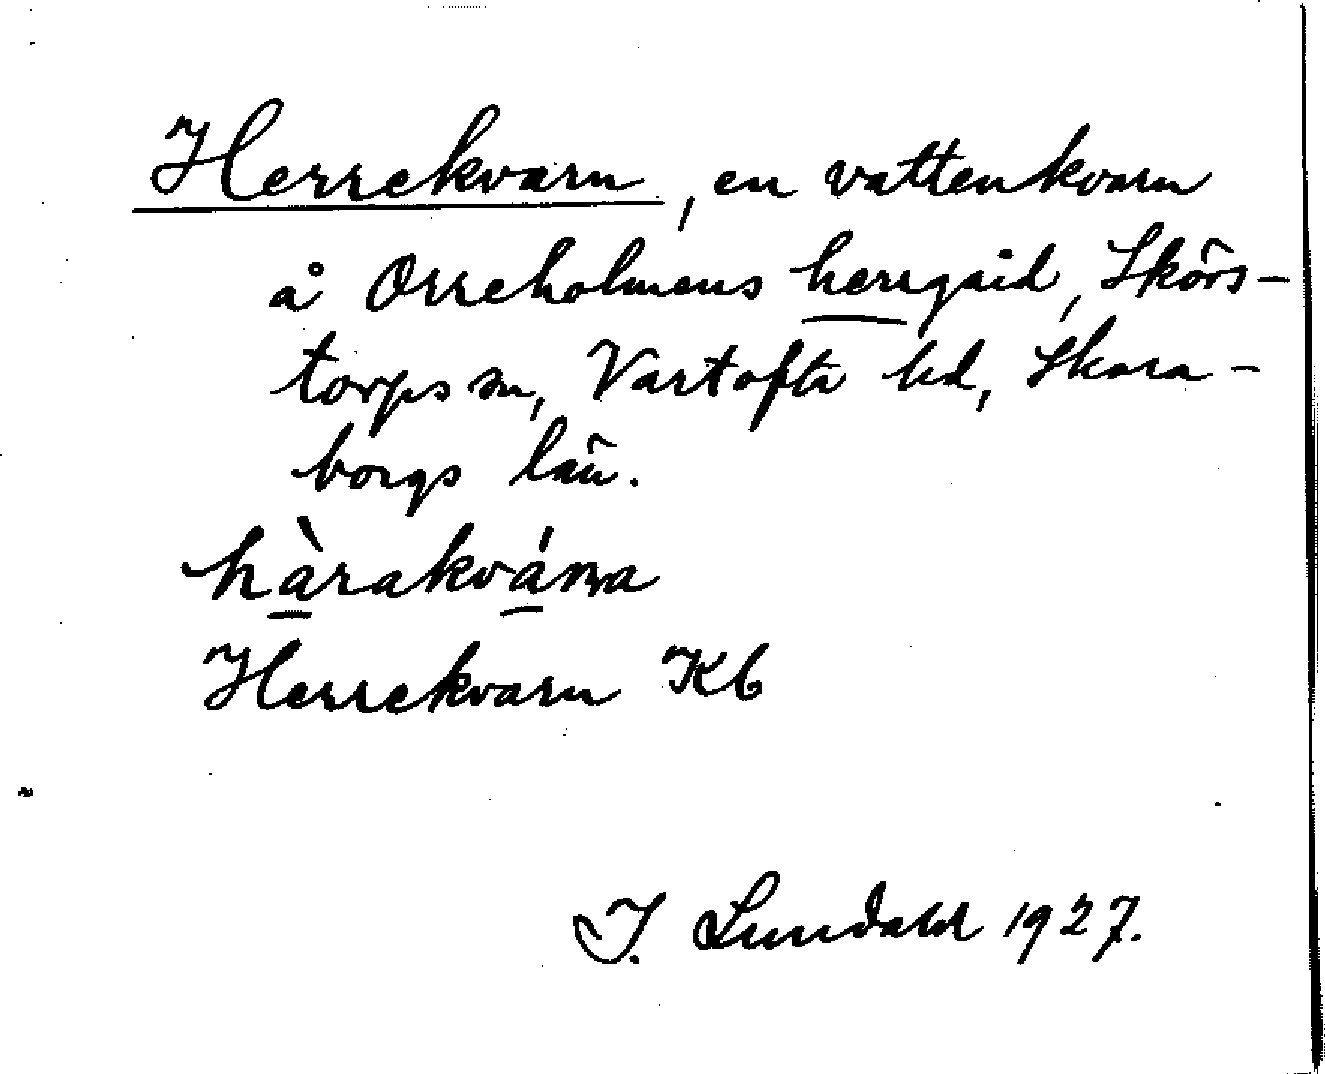 Herrekvarn, en vattenkvarn
å Orreholmens herrgård, Skörs-
torps sn, Vartofta hd, Skara-
borgs län.
hàrakvána
Herrekvarn Kb
I. Lundahl 1927.